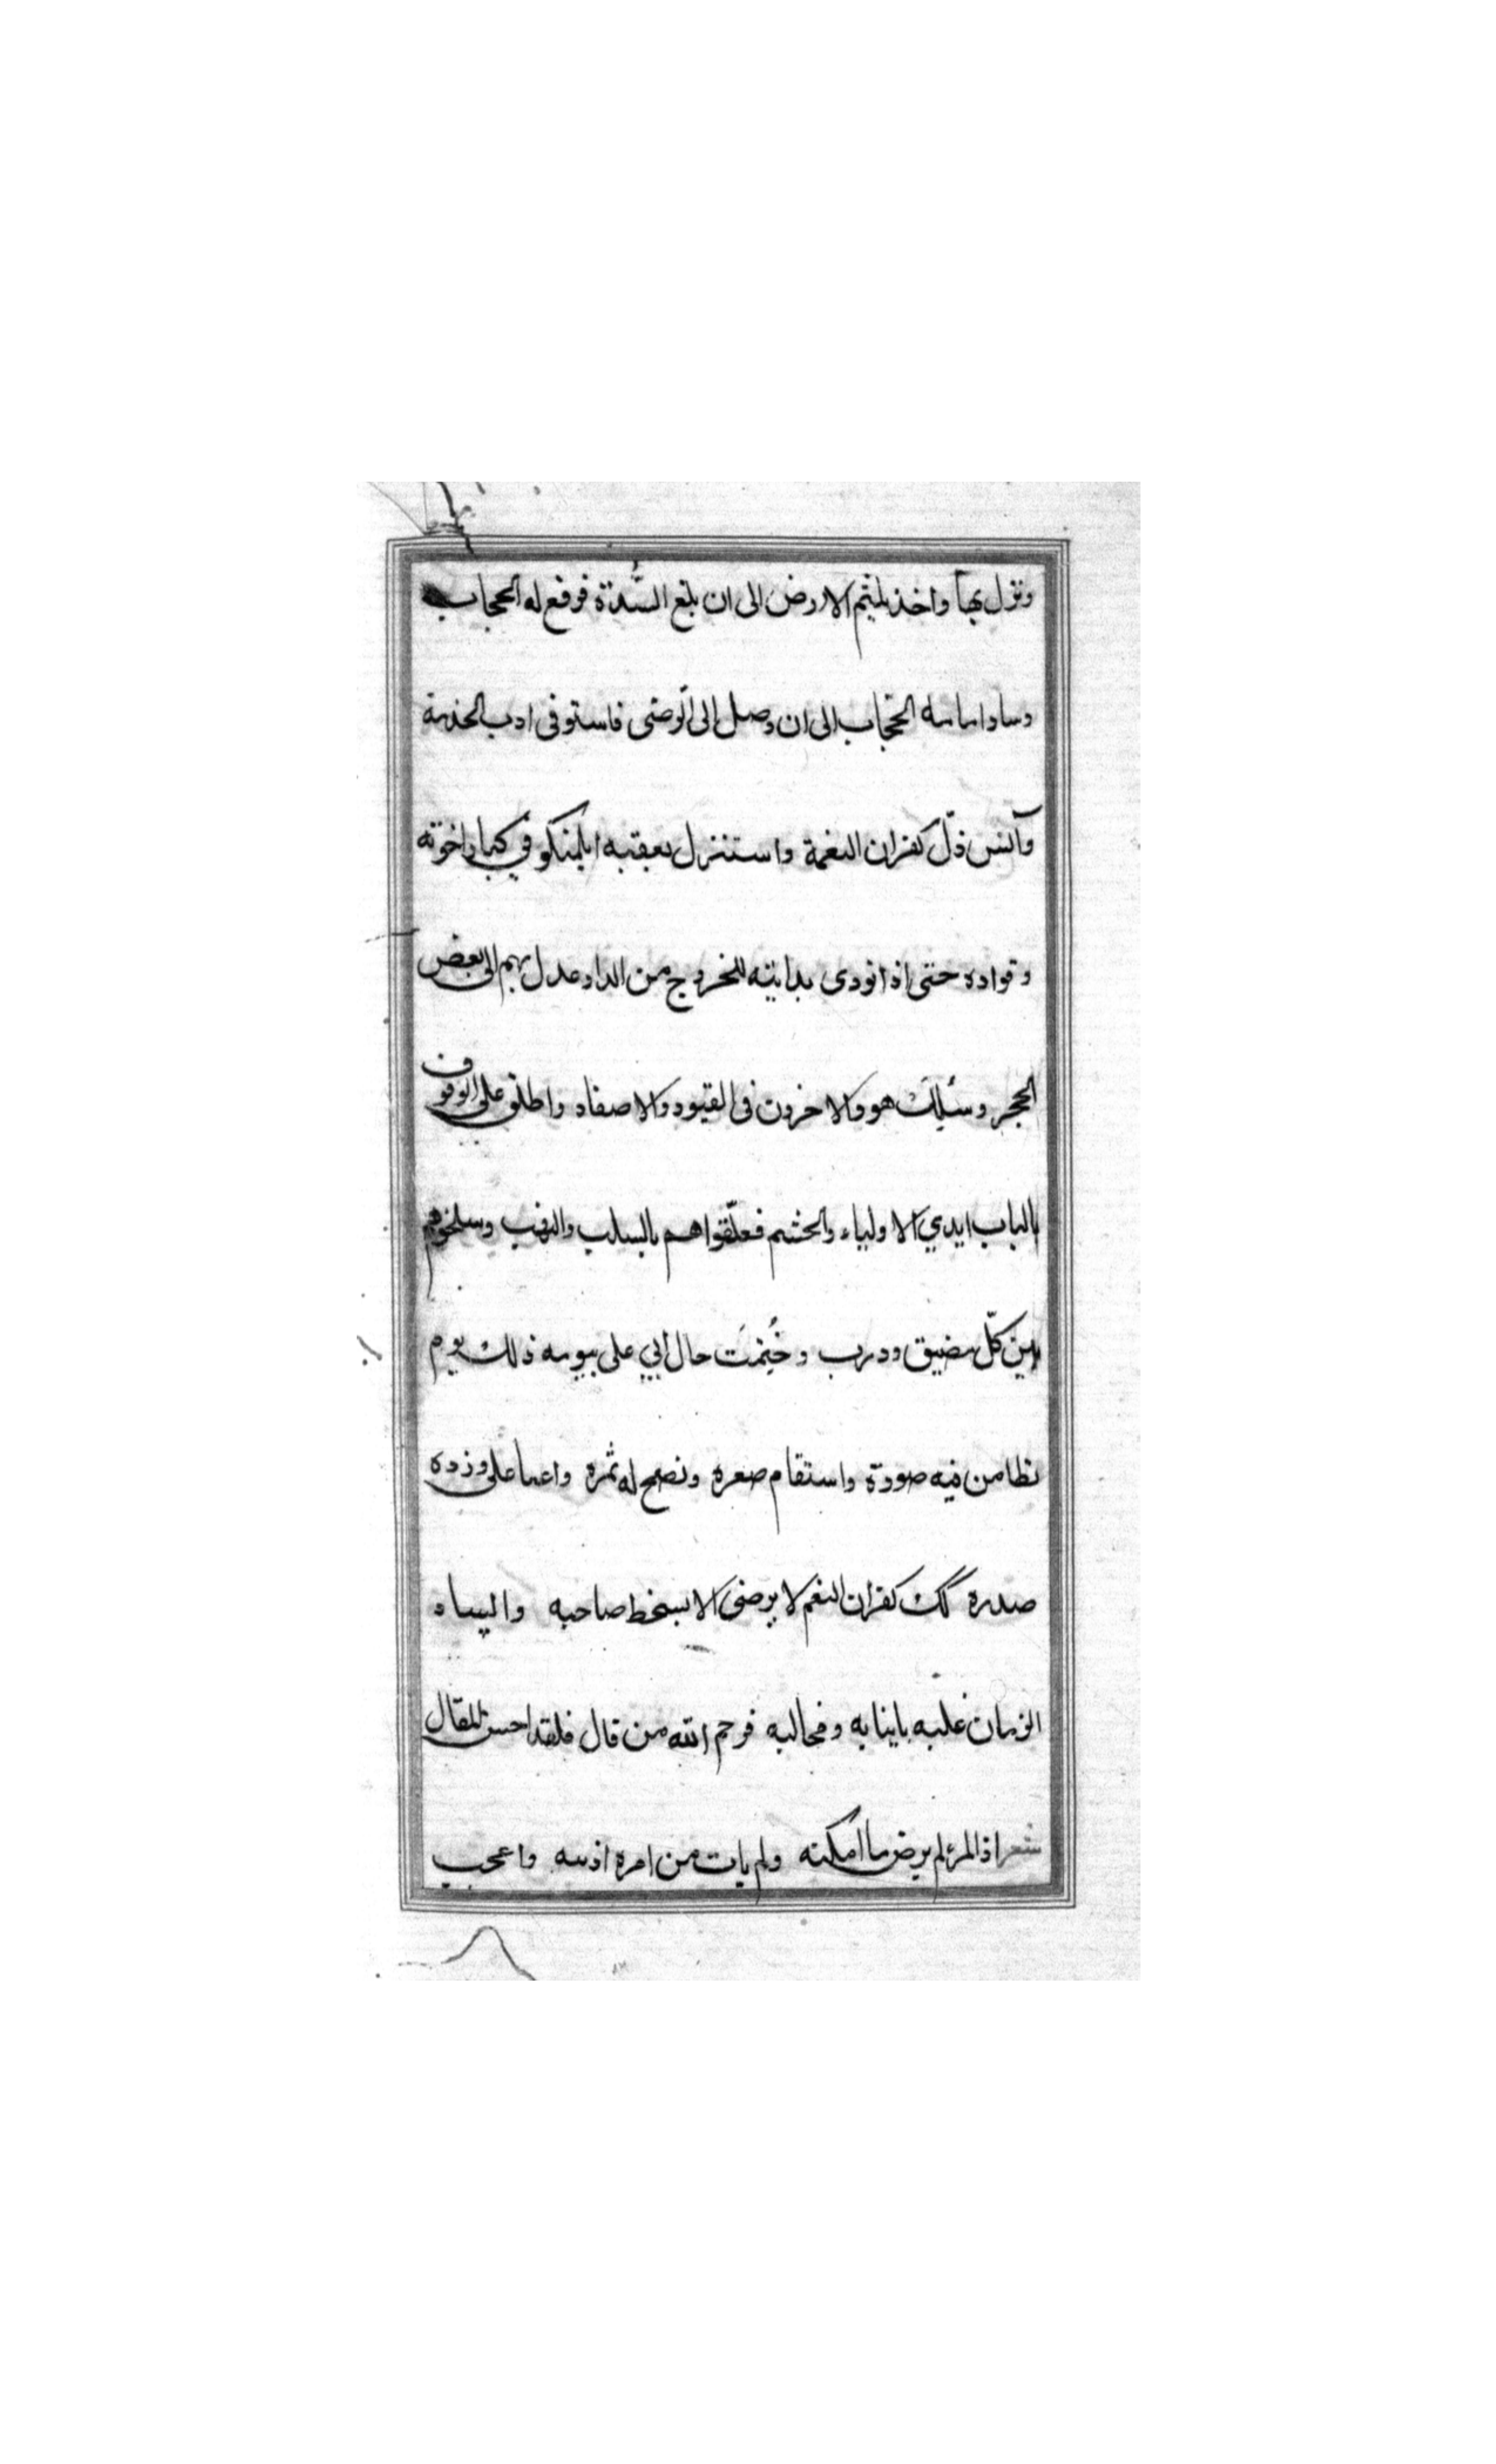 ونزل بها واخذ يلثم الارض الى ان بلغ السُّدّة فرفع له الحجاب
وسار امامه الحجّاب الى ان وصل الى الرّضى فاستوفى ادب الخدمة
وآنس ذلّ كفران النعمة واستنزل بعقبه ايلمنكو في كبار اخوته
وقواده حتى اذا نودى بدابته للخروج من الدار عدل بهم الى بعض
الحجر وسُلِكَ هو والاخرون فى القيود والاصفاد واطلق على الوقوف
بالباب ايدي الاولياء والحشم فعلّقواهم بالسلب والنهب وسلخوهم
بين كلّ مضيق ودرب وخُتِمَت حال ابي على بيومه ذلك يوم
تطامن فيه صورة واستقام صعره ونصح له ثمره واعيا على ورده
صدره كك كفران النعم لا يرضى الا بسخط صاحبه والساء
الزمان غلبه بانيابه ومخالبه فرحم الله من قال فلقد احسن المقال
شعر اذ المرء لم يرض ما امكنه ولم يات من امره ازينه واعجب